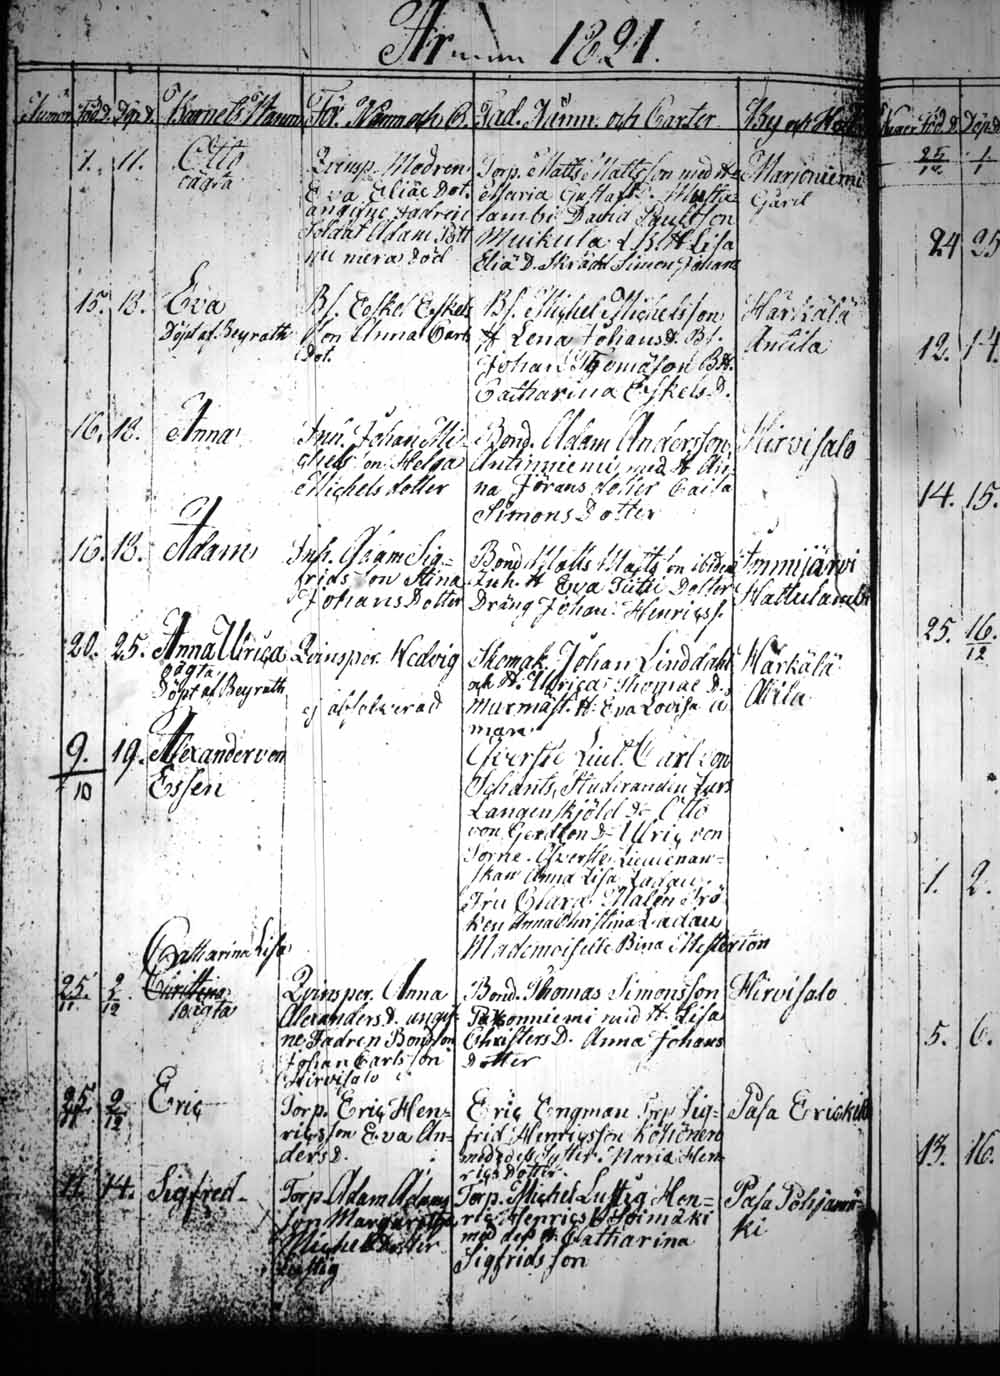 År 1821.
Född d. Döp d. Barnets Namn För. Namn och C. Fad. Namn. och Carter By och Hem
7. 11. Otto
oägta
Qvinsp. Modren
Eva Eliæ Dot.
angifne Fadren
Soldat Adam Pött
nu mera död
Torp. Matts Mattsson med H
Maria Gustafs
lambi David Paulsson
Muikula
Eliæ D. Skrädd Simon Johans
Marjoniemi
Gård
15. 18. Eva
Döpt af Beyrath
Bs. Eskel Eskels
son Anna Carls
Dot.
Bs. Michel Michelsson
H Lena Johansd. Bs.
Johan Thomason BH.
Catharina Eskels D.
Härkälä
Anttila
16. 18. Anna
Inh. Johan Mi-
chels son Helga
Michels dotter
Bond. Adam Andersson
Anttinniemi med H An-
na Jörans dotter Caisa
Simons Dotter
Hirvisalo
16. 18. Adam
Inh. Adam Sig-
frids son Stina
Johans Dotter
Bond Matts Matts son ibidem
Inh. H Eva Tutti Dotter
Dräng Johan Henricss.
Immijärvi
Hattulambi
20. 25. Anna Ulrica
oägta
Döpt af Beyrath
Qvinsper. Hedvig
ej absolverad
Skomak. Johan Linddahl
och H. Ulrica Thomæ D.
Murmäst. H. Eva Lovisa
Härkälä
Akila
9. 19. Alexander von
10 Essen
Öfverste Liut. Carl von
Schants, Studeranden Lars
Langenskjöld d:o Otto
von Gerdten d:o Ulric von
Törne. Öfverste Lieutenan-
skan Anna Lisa Ladau
Fru Clara Malen Frö
ken Anna Christina Ladau
Mademoiselle Bina Mesterton
Catharina Lisa
25. 2
11 12
Christina
oägta
Qvinsper. Anna
Alexanders D. angif-
ne Fadren Bondson
Johan Carlsson
Hirvisalo
Bond. Thomas Simonsson
Paksonniemi med H. Lisa
Christers D. Anna Johans
Dotter
Hirvisalo
25. 2
11 12
Eric
Torp. Eric Hen-
ricsson Eva An-
ders D.
Eric Engman Torp Sig-
frid Henricsson Köhönen
med dess Syster Maria Hen
rics Dotter.
Pasa Erickilä
11. 14. Sigfred
Torp. Adam Adams
son Margaretha
Michels Dotter
Lustig
Torp. Michel Lustig Hen-
ric Henricss Hoimäki
med dess H. Catharina
Sigfridsson
Pasa Pohjamä-
ki
Född D. Döp D
25 1
12 1
24 25
12. 14.
14. 15.
25. 16.
12
1. 2.
5. 6.
13. 16.